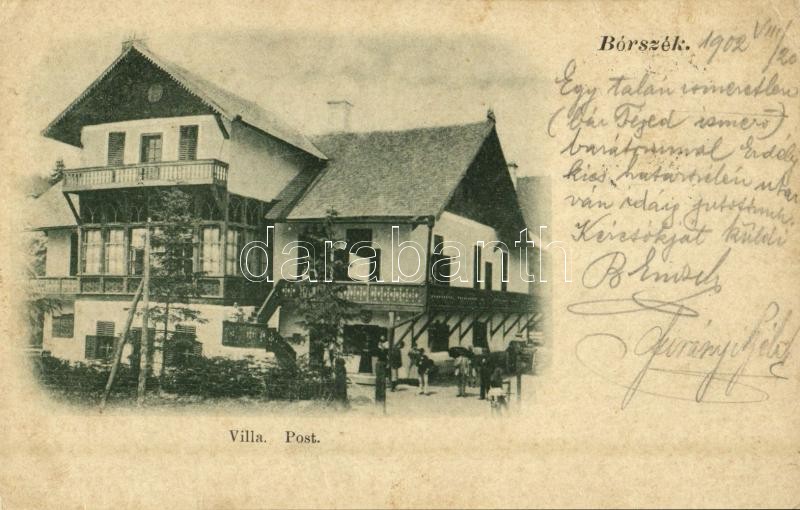 Bórszék. 1902 VIII/20
Egy talán ismeretlen
(bár Téged ismerő)
barátommal Erdély
kies határszélén utaz
ván idáig jutottunk.
Kézcsókját küldi
darabanth
Villa. Post.